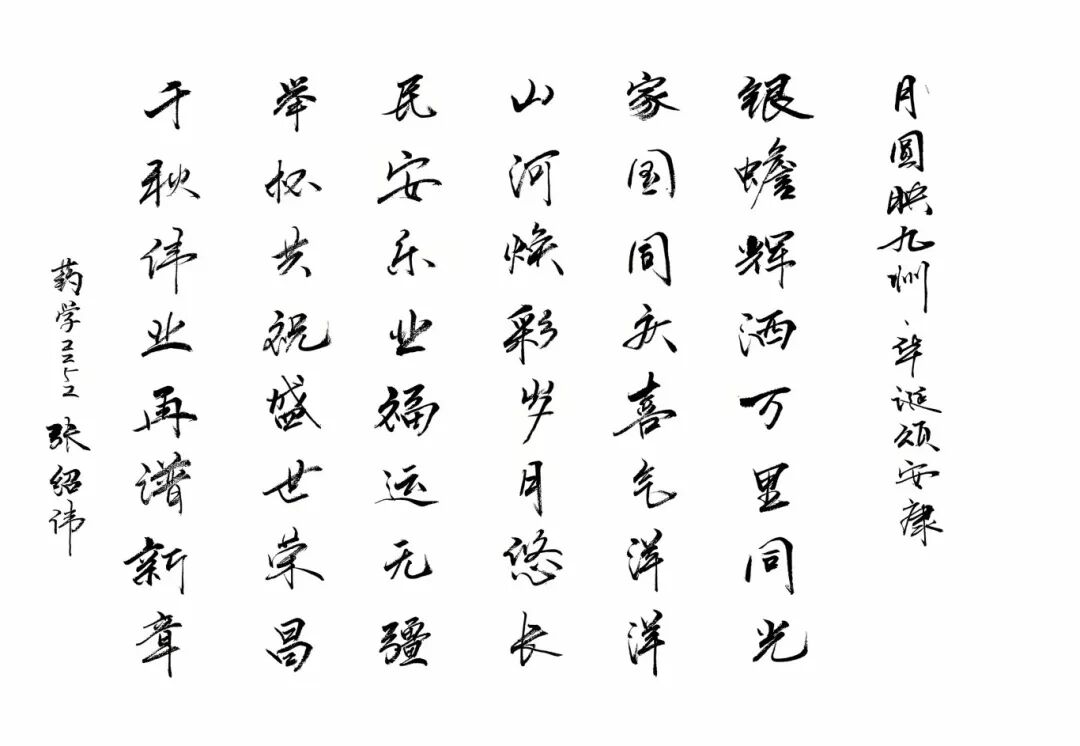 月圆映九州,华诞颂安康
银蟾辉洒万里同光
家国同庆喜气洋洋
山河焕彩岁月悠长
民安乐业福运无疆
举杯共祝盛世荣昌
千秋伟业再谱新章
药学2252 张绍伟